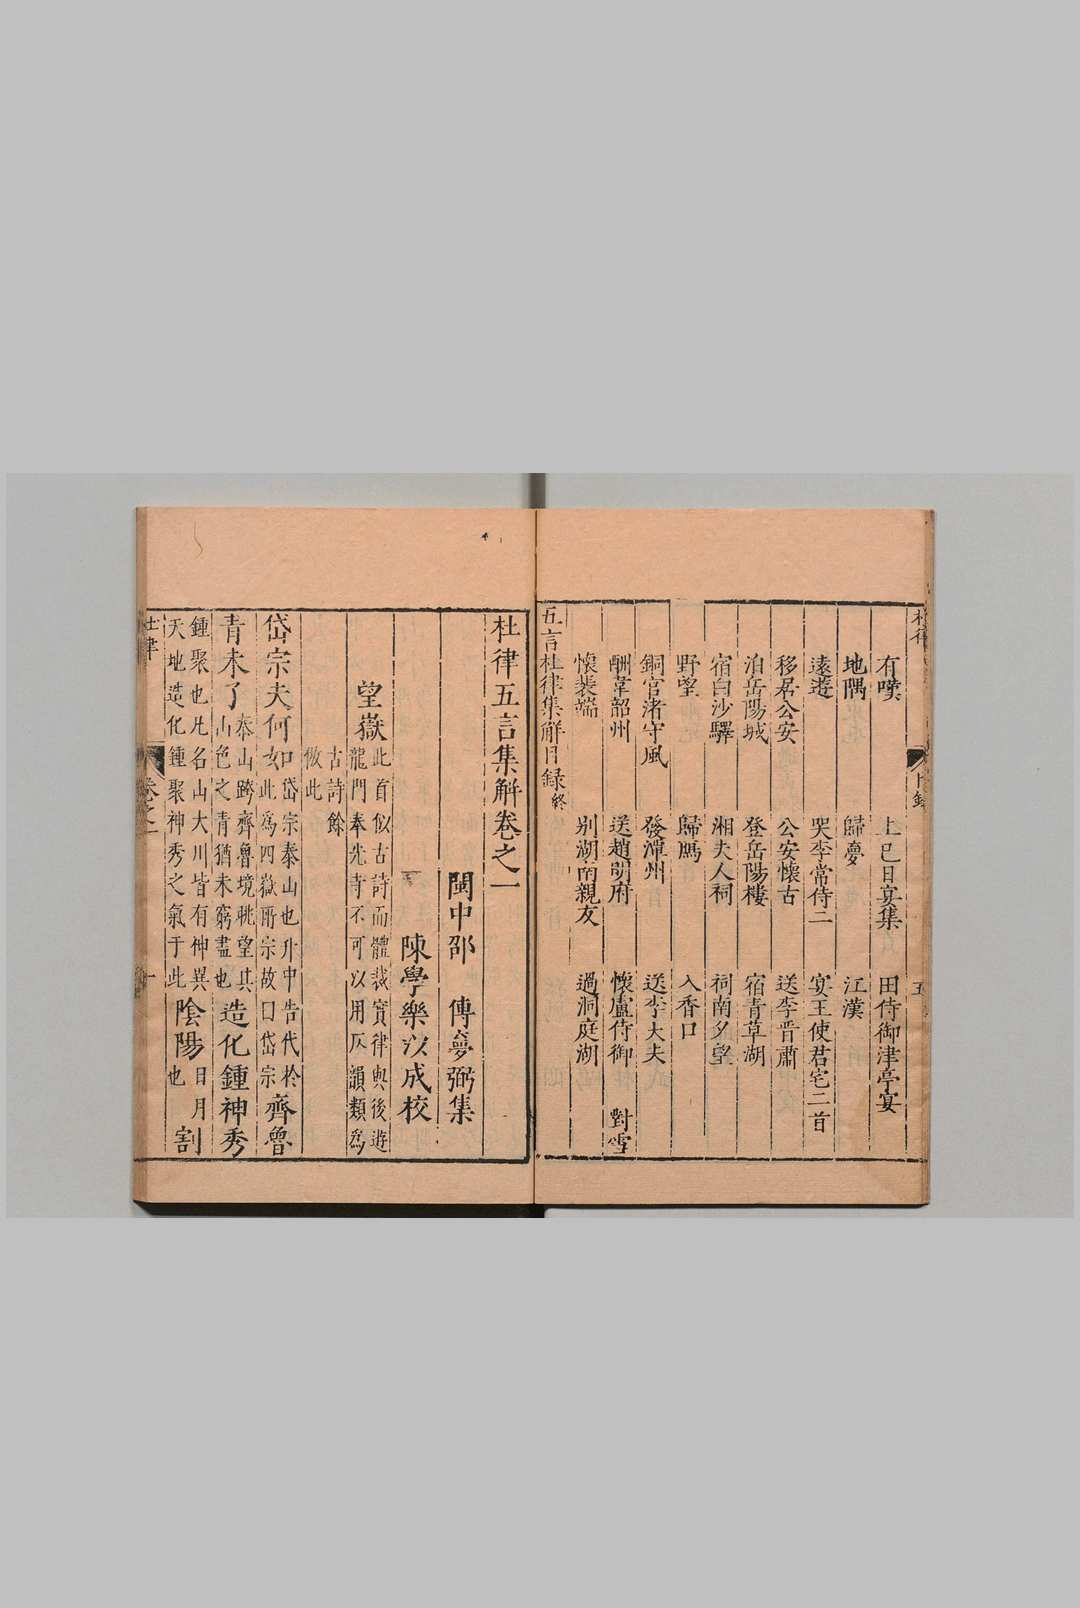 有嘆　上巳日宴集　田侍御津亭宴
地隅　歸夢　江漢
遠遊　哭李常侍二　宴王使君宅二首
移居公安　公安懷古　送李晋肅
泊岳陽城　登岳陽樓　宿青草湖
宿白沙驛　湘夫人祠　祠南夕望
野望　歸鴈　入香口
銅官渚守風　發潭州　送李大夫
酬韋韶州　送趙明府　懷盧侍御　對雪
懷裴端　别湖南親友　過洞庭湖
五言杜律集解目録終
杜律五言集解卷之一
閩中邵　傅夢弼集
陳學樂以成校
望嶽
此首似古詩而體裁實律與後遊
龍門奉先寺不可以用仄韻類爲
古詩餘
倣此
岱宗夫何如
岱宗泰山也升中告代於
此爲四嶽所宗故曰岱宗
齊魯
青未了
泰山跨齊魯境眺望其
山色之青猶未窮盡也
造化鍾神秀
鍾聚也凡名山大川皆有神異
天地造化鍾聚神秀之氣于此
陰陽
日月
也
割
杜律
卷之一
一